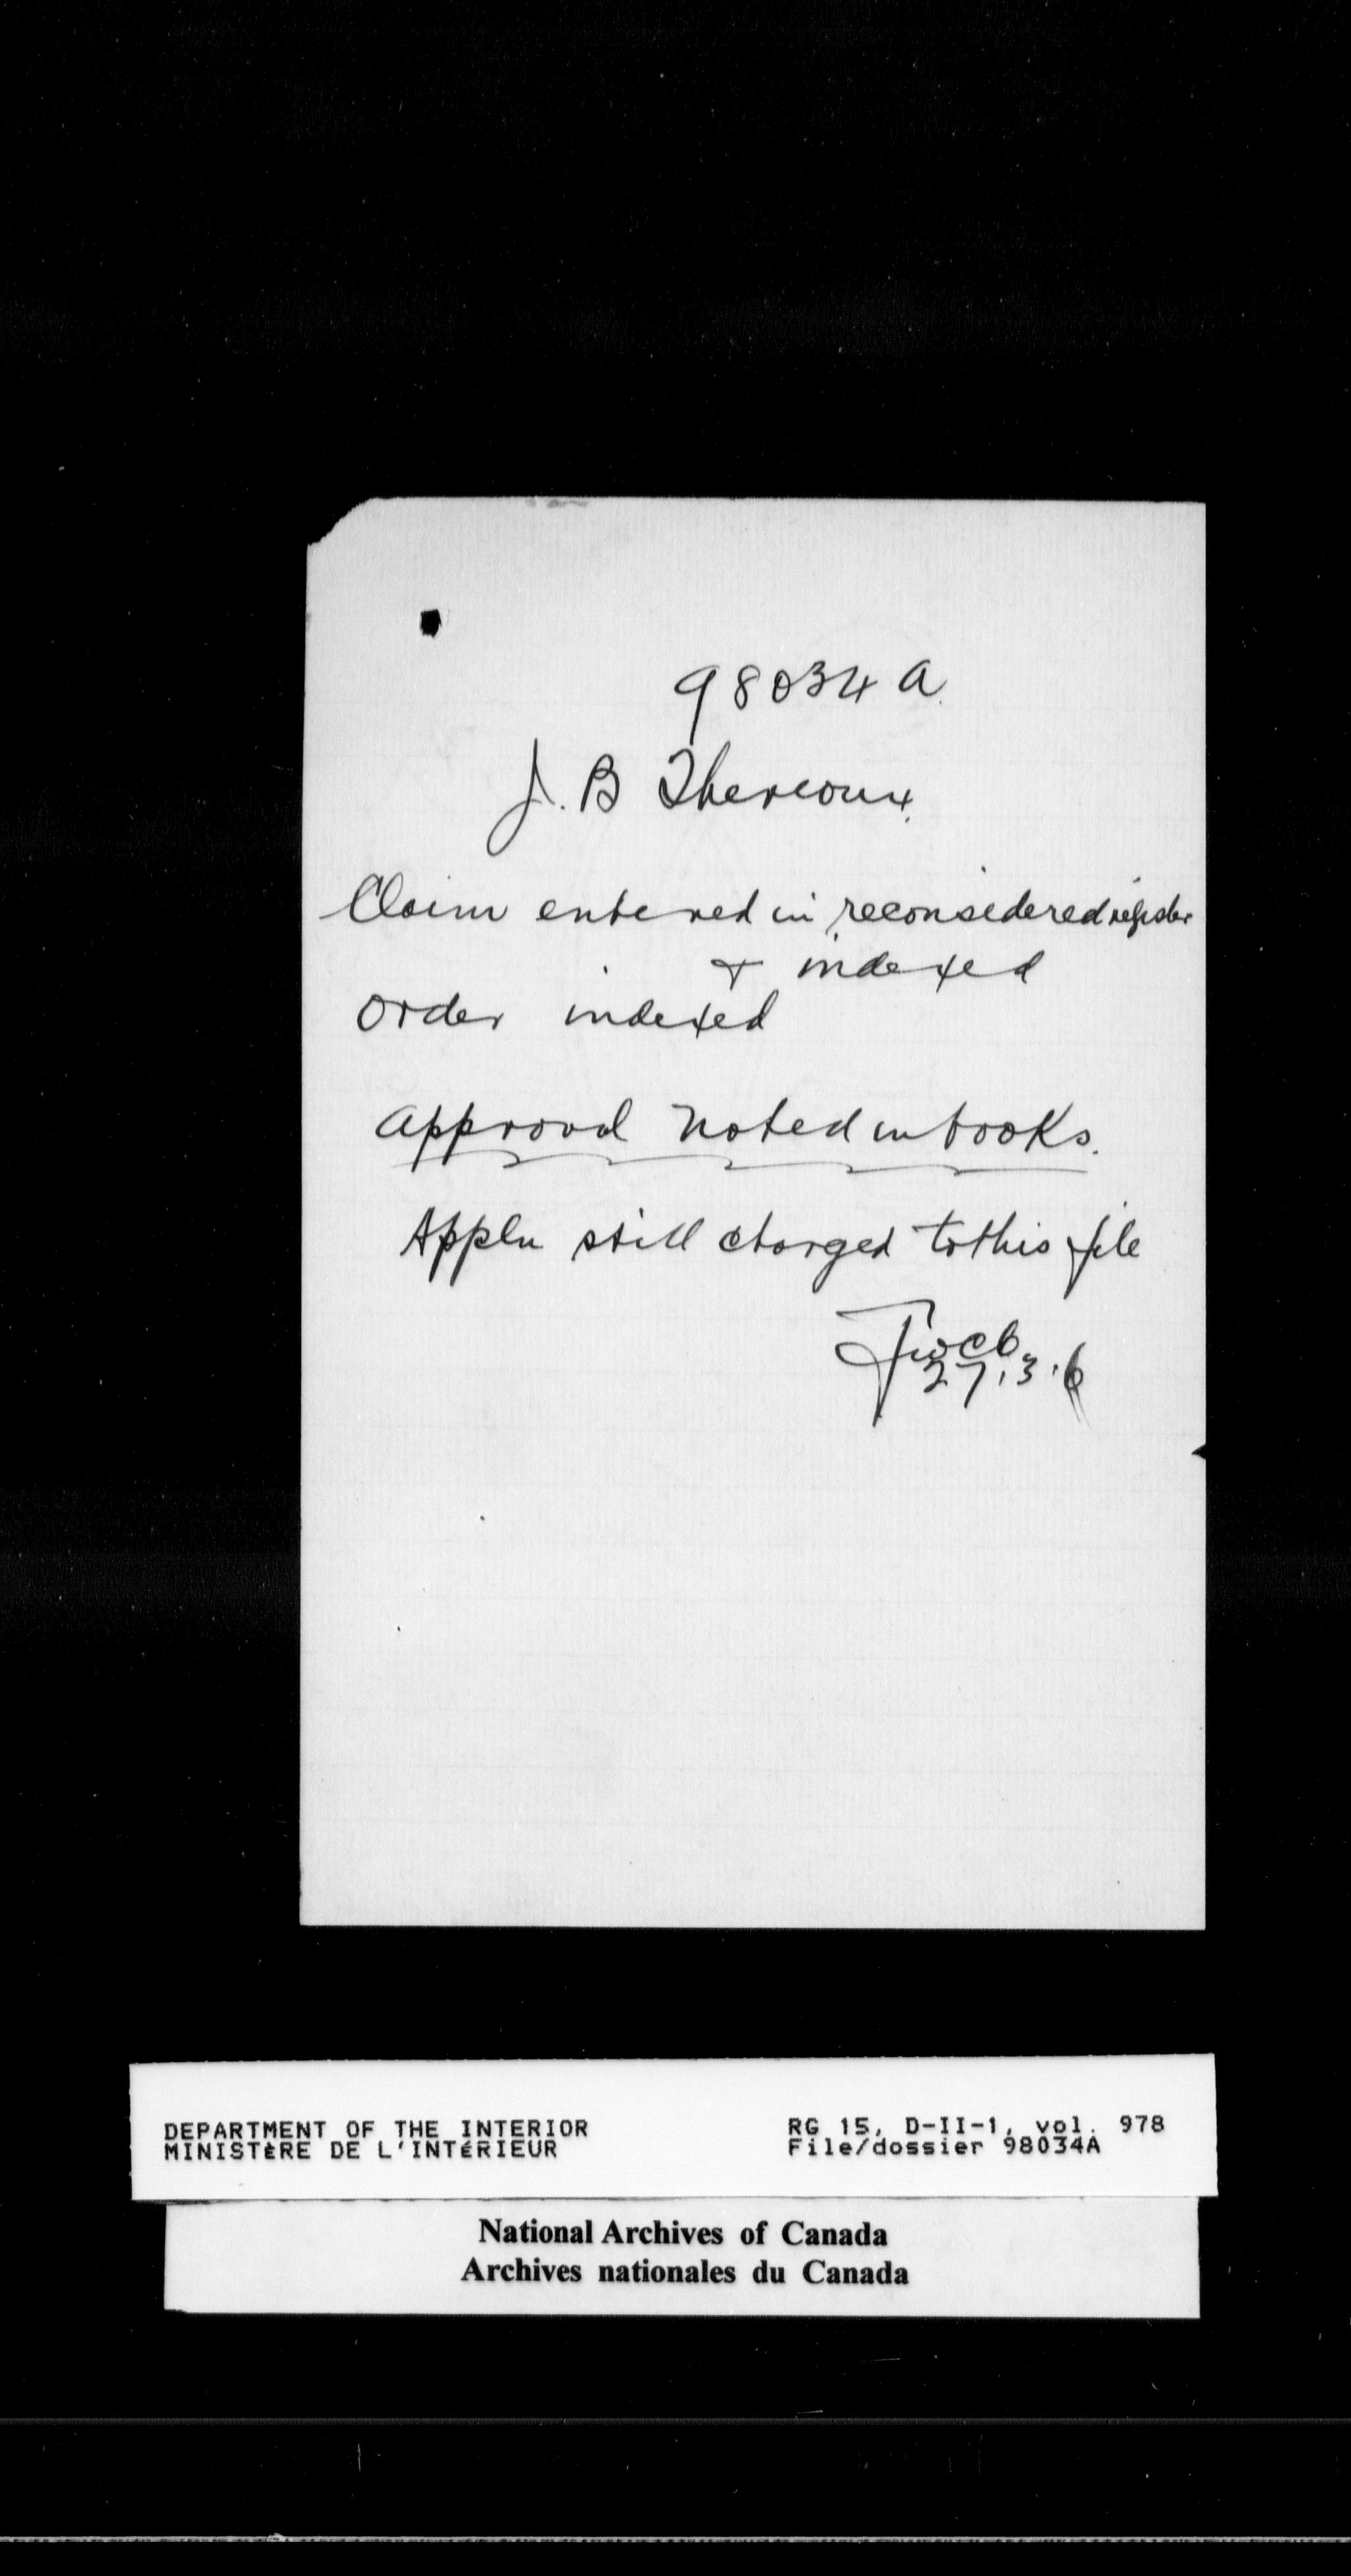 98034 a
J. B Thereoux
Claim entered in reconsidered register
& indexed
Order indexed
Approval noted in books.
Appln still charged to this file
27.3.6
DEPARTMENT OF THE INTERIOR
MINISTÈRE DE L'INTÉRIEUR
RG 15, D-II-1, vol. 978
File/dossier 98034A
National Archives of Canada
Archives nationales du Canada